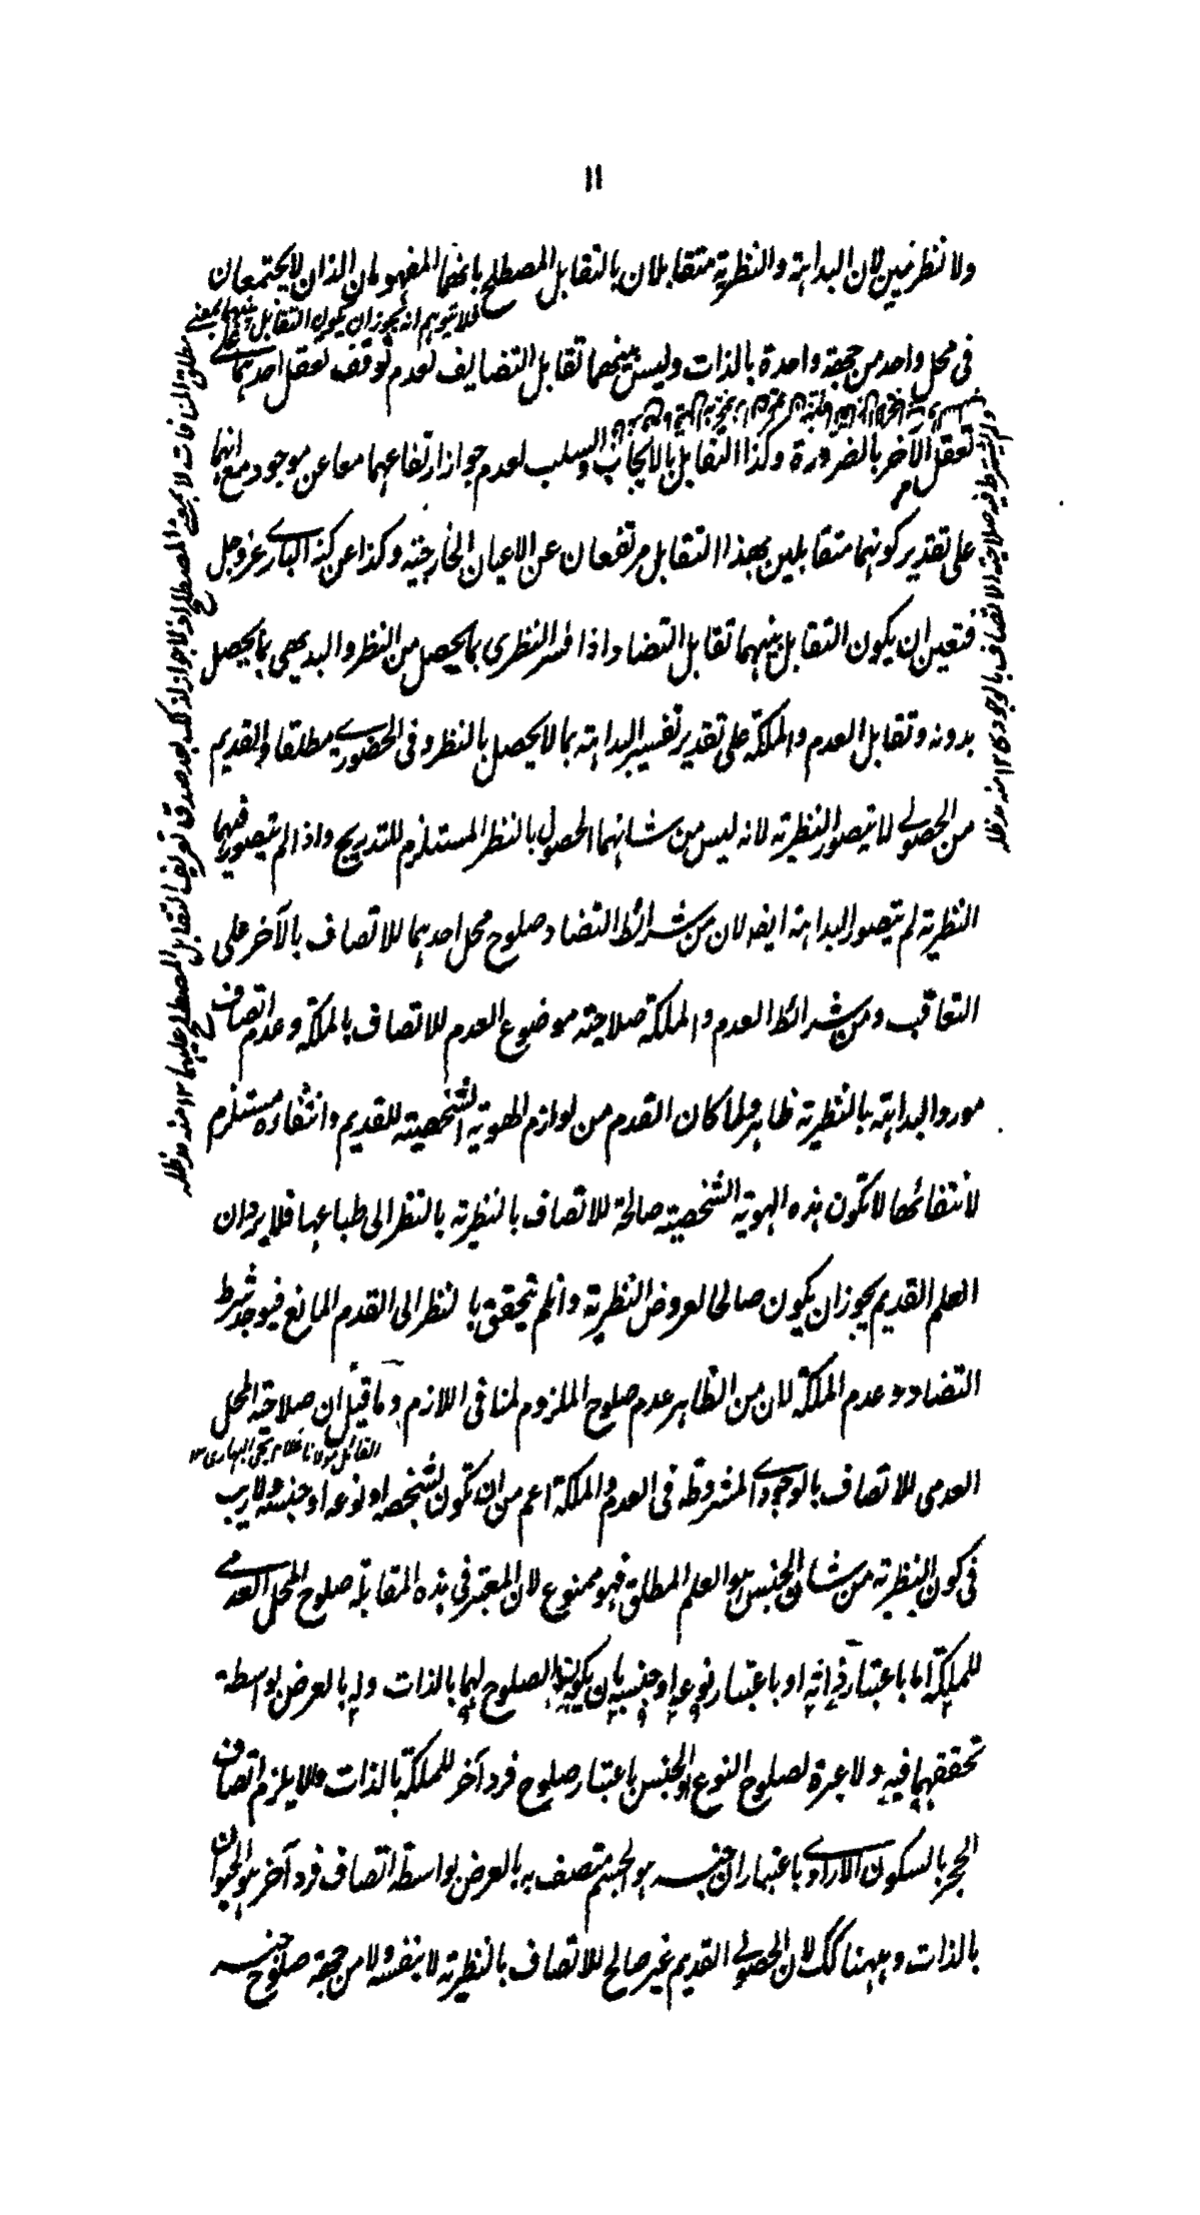 ١١
ولا نظرميين لان البداهة والنظرية متقابلان بالتقابل المصطلح بانهما المفهومان الذان لا يجتمعان
فلا يتوهم انه يجوز ان يكون التقابل بينهما بمعنى
في محل واحد من جهة واحدة بالذات وليس بينهما تقابل التضايف لعدم توقف تعقل احدهما على
تعقل الآخر بالضرورة وكذا التقابل بالايجاب والسلب لعدم جواز ارتفاعهما معا عن موجود مع انهما
على تقدير كونهما متقابلين بهذا التقابل مرتفعان عن الاعيان الخارجية وكذا عن كنه الباري عز وجل
فتعين ان يكون التقابل بينهما تقابل التضاد اذا فسر النظري بما يحصل من النظر والبديهي بما يحصل
بدونه وتقابل العدم والملكة على تقدير تفسير البداهة بما لا يحصل بالنظر وفى الحضوري مطلقا والقديم
من الحصولي لا يتصور النظرية لانه ليس من شانهما الحصول بالنظر المستلزم للتدريج واذا لم يتصور فيهما
النظرية لم يتصور البداهة ايضا لان من شرائط التضاد صلوح محل احدهما للاتصاف بالآخر على
التعاقب ومن شرائط العدم والملكة صلاحية موضوع العدم للاتصاف بالملكة وعدم اتصاف
مورد البداهة بالنظرية ظاهر ولما كان القدم من لوازم الهوية الشخصية للقديم وانتفاءه مستلزم
لانتفائها لا تكون هذه الهوية الشخصية صالحة للاتصاف بالنظرية بالنظر الى طباعها فلا يرد ان
العلم القديم يجوز ان يكون صالحا لعروض النظرية وان لم يتحقق بالنظر الى القدم المانع فيوجد شرط
التضاد وعدم الملكة لان من الظاهر عدم صلوح الملزوم لمنافى اللازم وما قيل ان صلاحية المحل
القائل مولانا غلام يحيى البهاري ١٢
العدمى للاتصاف بالوجودي المشروطة فى العدم والملكة اعم من ان تكون لشخصه او نوعه او جنسه ولا ريب
فى كون النظرية من شان الجنس هو العلم المطلق فهو ممنوع لان المعتبر فى هذه المقابلة صلوح المحل العدمي
للملكة اما باعتبار ذاته او باعتبار نوعه او جنسه بان يكون الصلوح لهما بالذات وله بالعرض بواسطة
تحققهما فيه ولا عبرة لصلوح النوع او الجنس باعتبار صلوح فرد آخر للملكة بالذات والا يلزم اتصاف
الحجر بالسكون الارادي باعتبار ان جنسه هو الجسم متصف به بالعرض بواسطة اتصاف فرد آخر هو الحيوان
بالذات وههنا كك لان الحصولي القديم غير صالح للاتصاف بالنظرية لا بنفسه ولا من جهة صلوح جنسه
مطلق المنافات لا بمعنى المصطلح اذ لا جواز لذلك بعد صدق تعريف التقابل المصطلح عليهما ١٢ منه مد ظله
صلاحية الاتصاف بالوجودي ١٢ منه مد ظله